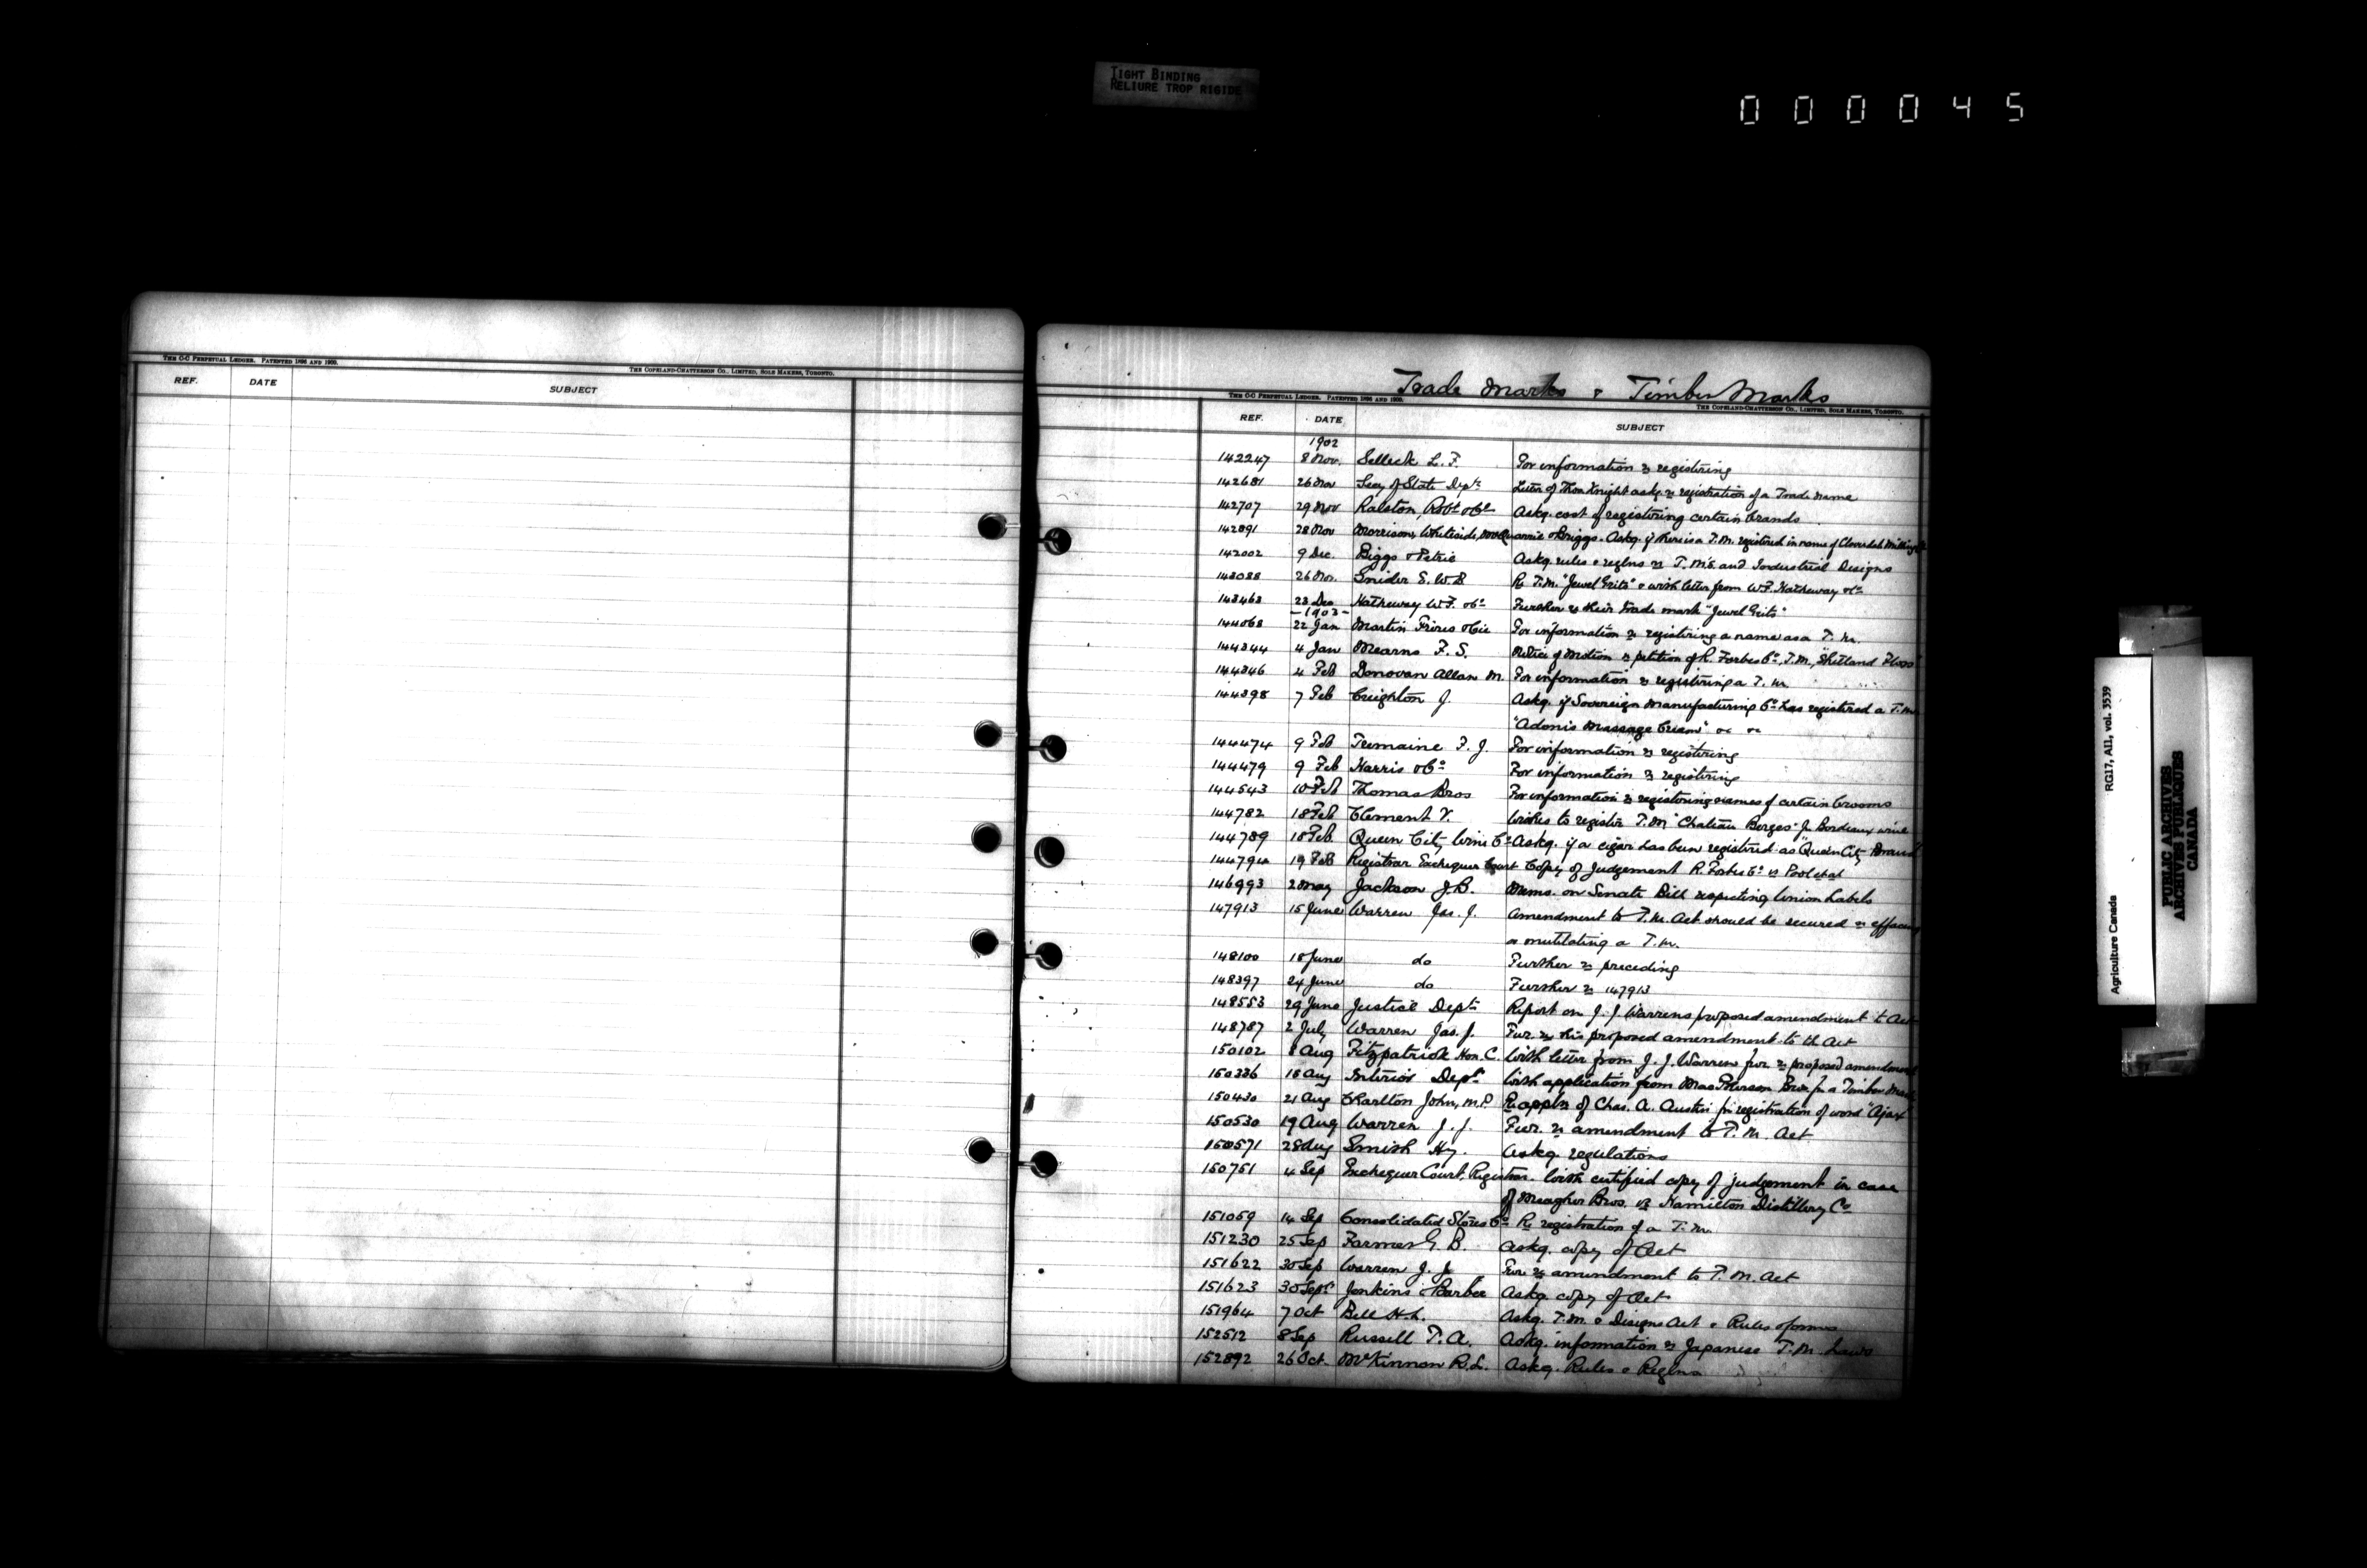 TIGHT BINDING
RELIURE TROP RIGIDE
000045
THE C-C PERPETUAL LEDGER. PATENTED 1896 AND 1900.
THE COPELAND-CHATTERSON CO., LIMITED, SOLE MAKERS, TORONTO.
REF. DATE SUBJECT
Trade Marks & Timber Marks
THE C-C PERPETUAL LEDGER. PATENTED 1896 AND 1900.
THE COPELAND-CHATTERSON CO., LIMITED, SOLE MAKERS, TORONTO.
REF. DATE SUBJECT
1902
142247 8 Nov. Selleck L. F. For information re registering
142681 26 Nov Secy of State Dept. Letter of Thos Knight askg. re registration of a Trade name
142707 29 Nov Ralston, Robt & Co. Askg. cost of registering certain brands
142891 28 Nov Morrison, Whiteside, McQuarrie & Briggs. Askg. if there is a T.M. registered in name of Cloverdale Milling Co
142002 9 Dec. Biggs & Petrie Askg. rules & reglns re T. M's. and Industrial Designs
143088 26 Nov. Snider E. W. B Re T.M. "Jewel Grits" & with letter from W.F. Hatheway & Co
143463 23 Dec Hatheway W.F. & Co. Further re their trade mark "Jewel Grits"
-1903-
144068 22 Jan Martin Frères & Cie For information re registering a name as a T. M.
144344 4 Jan Mearns F. S. Notice of Motion re petition of R. Forbes Co., T.M., "Shetland Floss"
144346 4 Feb Donovan Allan M. For information re registering a T. M.
144398 7 Feb Creighton J. Askg. if Sovereign Manufacturing Co. has registered a T.M.
"Adonis Massage Cream" &c &c
144474 9 Feb Tremaine F. J. For information re registering
144479 9 Feb Harris & Co. For information re registering
144543 10 Feb Thomas Bros For information re registering names of certain brooms
144782 18 Feb Clement V. Wishes to register T.M. "Chateau Berges" for Bordeaux wine
144789 18 Feb. Queen City Wine Co. Askg. if a cigar has been registered as "Queen City Brand"
144794 19 Feb Registrar Exchequer Court Copy of Judgement R. Forbes Co. vs Pool et al
146993 2 May Jackson J.B. Memo. on Senate Bill respecting Union Labels
147913 15 June Warren Jas. J. Amendment to T.M. Act should be secured re effacing
or mutilating a T.M.
148100 18 June do Further re preceding
148397 24 June do Further re 147913
148553 29 June Justice Dept. Report on J. J. Warrens proposed amendment to Act
148787 2 July Warren Jas. J. Fur. re his proposed amendment to th Act
150102 8 Aug Fitzpatrick Hon. C. With letter from J. J. Warren fur. re proposed amendment
150336 18 Aug Interior Dept. With application from Bros for a Timber Mark
150430 21 Aug Charlton John, M.P. Re appln of Chas. A. Austin for registration of word "Ajax"
150530 19 Aug Warren J. J. Fur. re amendment to T. M. Act
150571 28 Aug Smith Hy. Askg. regulations
150751 4 Sep Exchequer Court, Registrar. With certified copy of judgement in case
of Meagher Bros. vs Hamilton Distillery Co
151059 14 Sep Consolidated Stores Co. Re registration of a T.M.
151230 25 Sep Farmer G. B. Askg. copy of Act
151622 30 Sep Warren J. J Fur re amendment to T. M. Act
151623 30 Sept Jenkins & Barber Askg. copy of Act
151964 7 Oct Bell H.L. Askg. T.M. & Designs Act & Rules & forms
152512 8 Sep Russell T. A. Askg. information re Japanese T.M. Laws
152892 26 Oct. McKinnon R.L. Askg. Rules & Reglns
RG17, AII, vol. 3539
Agriculture Canada
PUBLIC ARCHIVES
ARCHIVES PUBLIQUES
CANADA